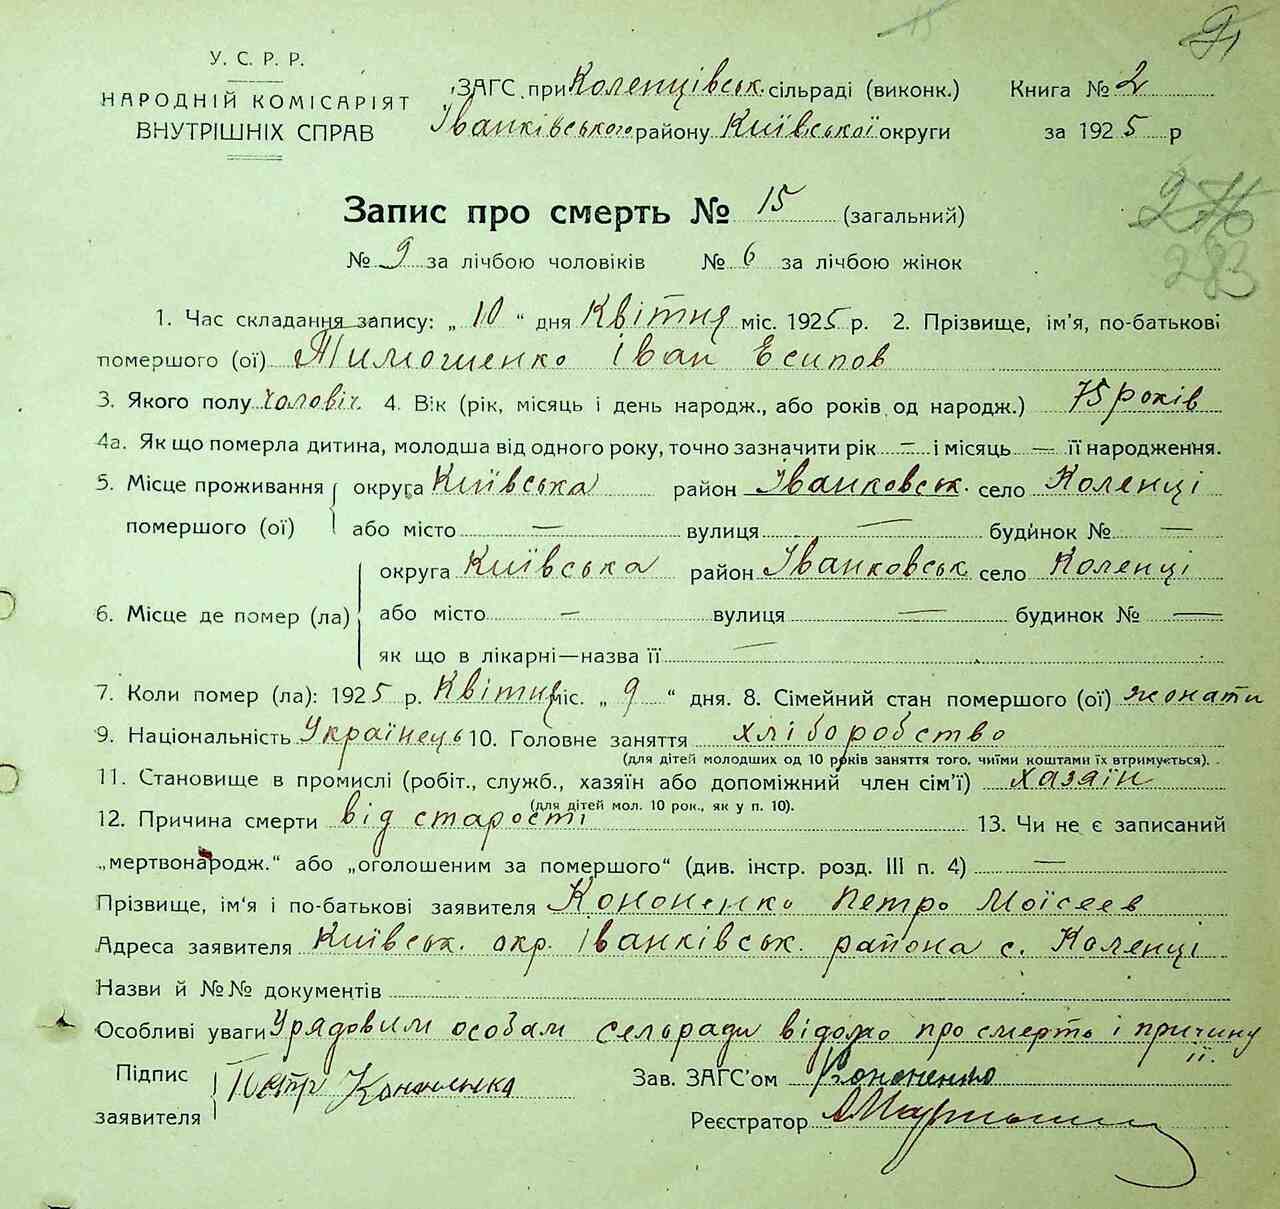 У. С. Р. Р.
НАРОДНІЙ КОМІСАРІЯТ
ВНУТРІШНІХ СПРАВ
ЗАГС при Коленцівськ. сільраді (виконк.)
Іванківського району Київської округи
Книга № 2
за 1925 р
Запис про смерть № 15 (загальний)
№ 9 за лічбою чоловіків № 6 за лічбою жінок
276
283
1. Час складання запису: „ 10 “ дня Квітня міс. 1925 р. 2. Прізвище, ім'я, по-батькові
помершого (ої) Тимошенко Іван Есипов
3. Якого полу чоловіч. 4. Вік (рік, місяць і день народж., або років од народж.) 75 років
4а. Як що померла дитина, молодша від одного року, точно зазначити рік — і місяць — її народження.
5. Місце проживання помершого (ої) округа Київська район Іванковськ. село Коленці
або місто — вулиця — будинок № —
6. Місце де помер (ла) округа Київська район Іванковськ село Коленці
або місто — вулиця — будинок № —
як що в лікарні—назва її —
7. Коли помер (ла): 1925 р. Квітня міс. „ 9 “ дня. 8. Сімейний стан помершого (ої) жонати
9. Національність Українець 10. Головне заняття хліборобство
(для дітей молодших од 10 років заняття того, чиїми коштами їх втримується).
11. Становище в промислі (робіт., служб., хазяїн або допоміжний член сім'ї) хазяїн
(для дітей мол. 10 рок., як у п. 10).
12. Причина смерти від старості 13. Чи не є записаний
„мертвонародж.“ або „оголошеним за помершого“ (див. інстр. розд. III п. 4) —
Прізвище, ім'я і по-батькові заявителя Кононенко Петро Моїсеев
Адреса заявителя Київськ. окр. Іванківськ. района с. Коленці
Назви й №№ документів
Особливі уваги Урядовим особам сельради відомо про смерть і причину
її.
Підпис заявителя Петр Кононенко
Зав. ЗАГС'ом Кононенко
Реєстратор